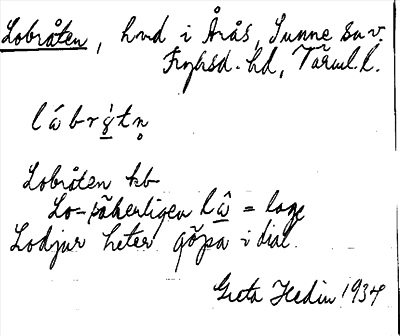 Lobråten, hmd i Årås, Sunne sn v.
Fryksd. hd, Värml. l.
lâbrɣ̀tn̥
Lobråten kb
Lo- säkerligen lâ = loge
Lodjur heter gôpa i dial.
Greta Hedin 1934